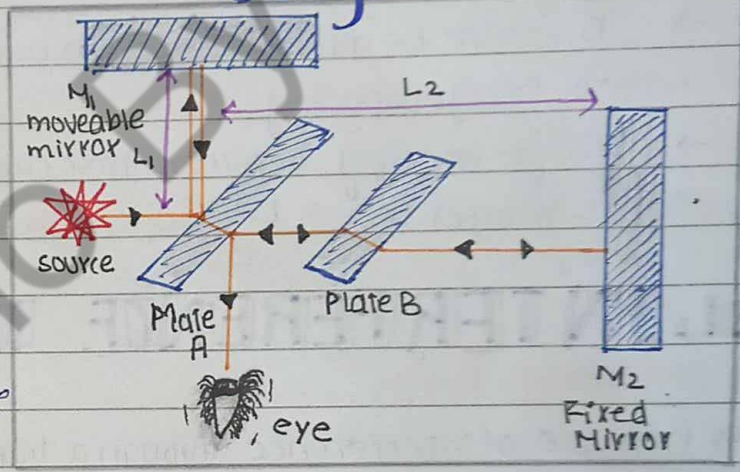 M1
moveable
mirror
L1
L2
source
Plate
A
Plate B
eye
M2
Fixed
Mirror